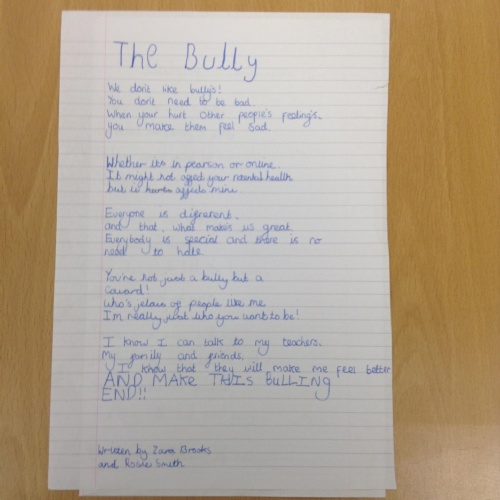 The Bully
We don't like bully's!
You don't need to be bad.
When your hurt other people's feeling's.
you make them feel sad.
Whether it's in pearson or online.
It might not affed your mental health
but it affeds mine.
Everyone is differerent.
and that, what makes us great.
Everybody is special and there is no
need to hate.
You're not just a bully but a
coward!
who's jelous of people like me
I'm really just who you want to be!
I know I can talk to my teachers.
My family and friends.
I know that they will make me feel better
AND MAKE THIS BULLING
END!!
Written by Zara Brooks
and Rosie Smith